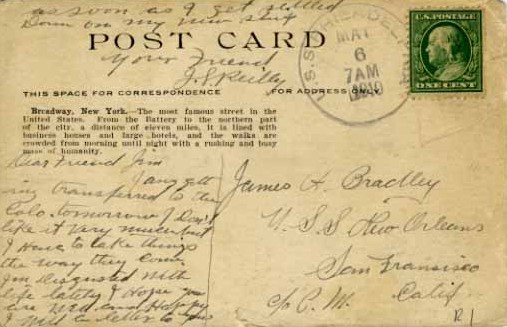 as soon as I get settled
Down on my new ship
POST CARD
Your Friend
J.S. Reilly
U.S.S. PHILADELPHIA
MAY
6
7AM
1910
U.S. POSTAGE
ONE CENT
THIS SPACE FOR CORRESPONDENCE
FOR ADDRESS ONLY
Broadway, New York.—The most famous street in the
United States. From the Battery to the northern part
of the city, a distance of eleven miles, it is lined with
business houses and large hotels, and the walks are
crowded from morning until night with a rushing and busy
mass of humanity.
Dear Friend Jim
I am gett
ing transferred to the
Colo. tomorrow I Don't
like it very much but
I Have to take things
the way they come
I'm Disgusted with
life lately & Hope you
are well and Happy
I will a letter to you
James H. Bradley
U.S.S New Orleans
San Fransisco
c/o P.M. Calif